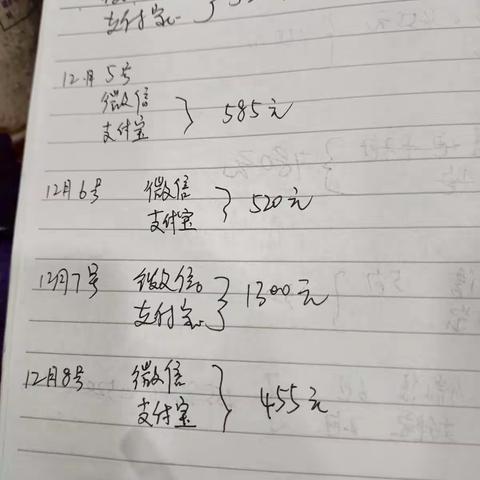 支付宝
12月5号
微信
支付宝 } 585元
12月6号 微信
支付宝 } 520元
12月7号 微信
支付宝 } 1300元
12月8号 微信
支付宝 } 455元